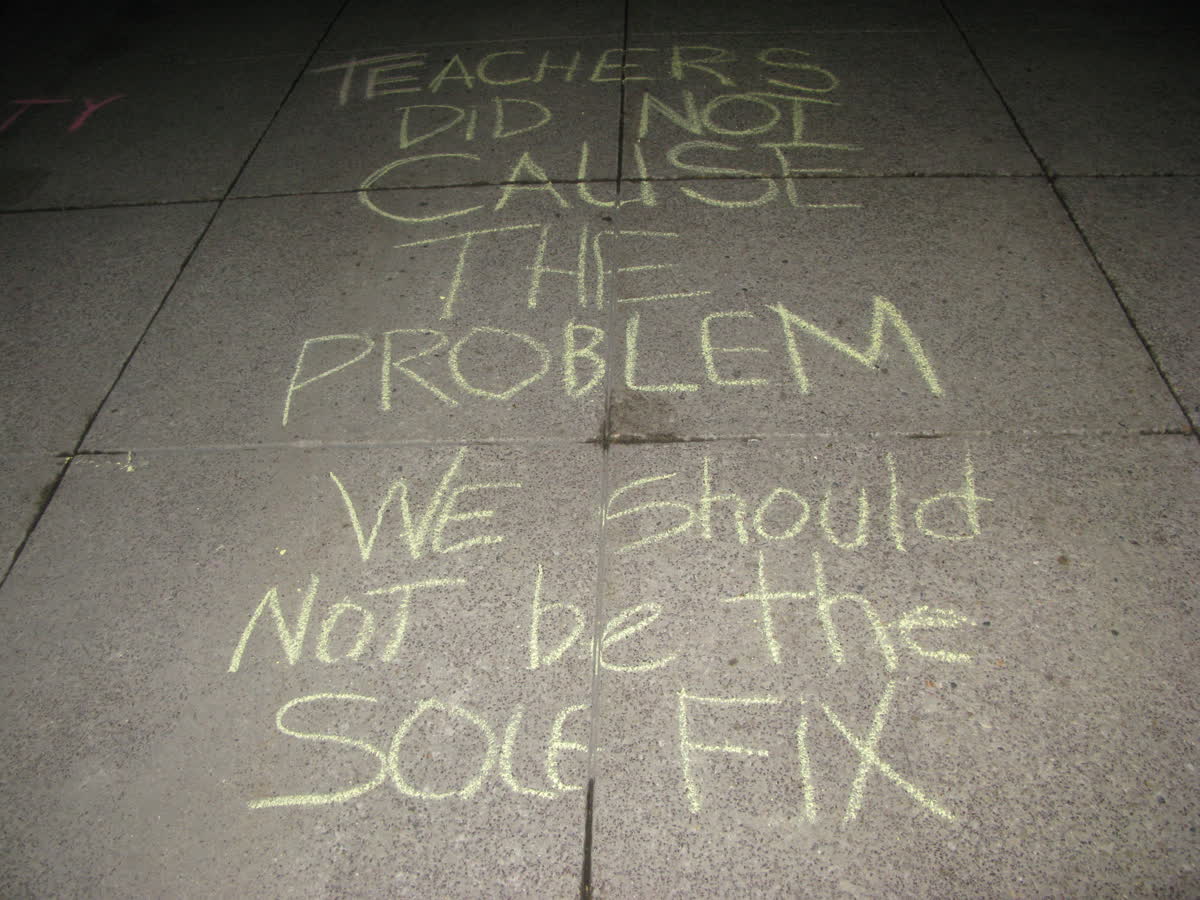 TY
TEACHERS
DID NOT
CAUSE
THE
PROBLEM
WE should
NOT be the
SOLE FIX